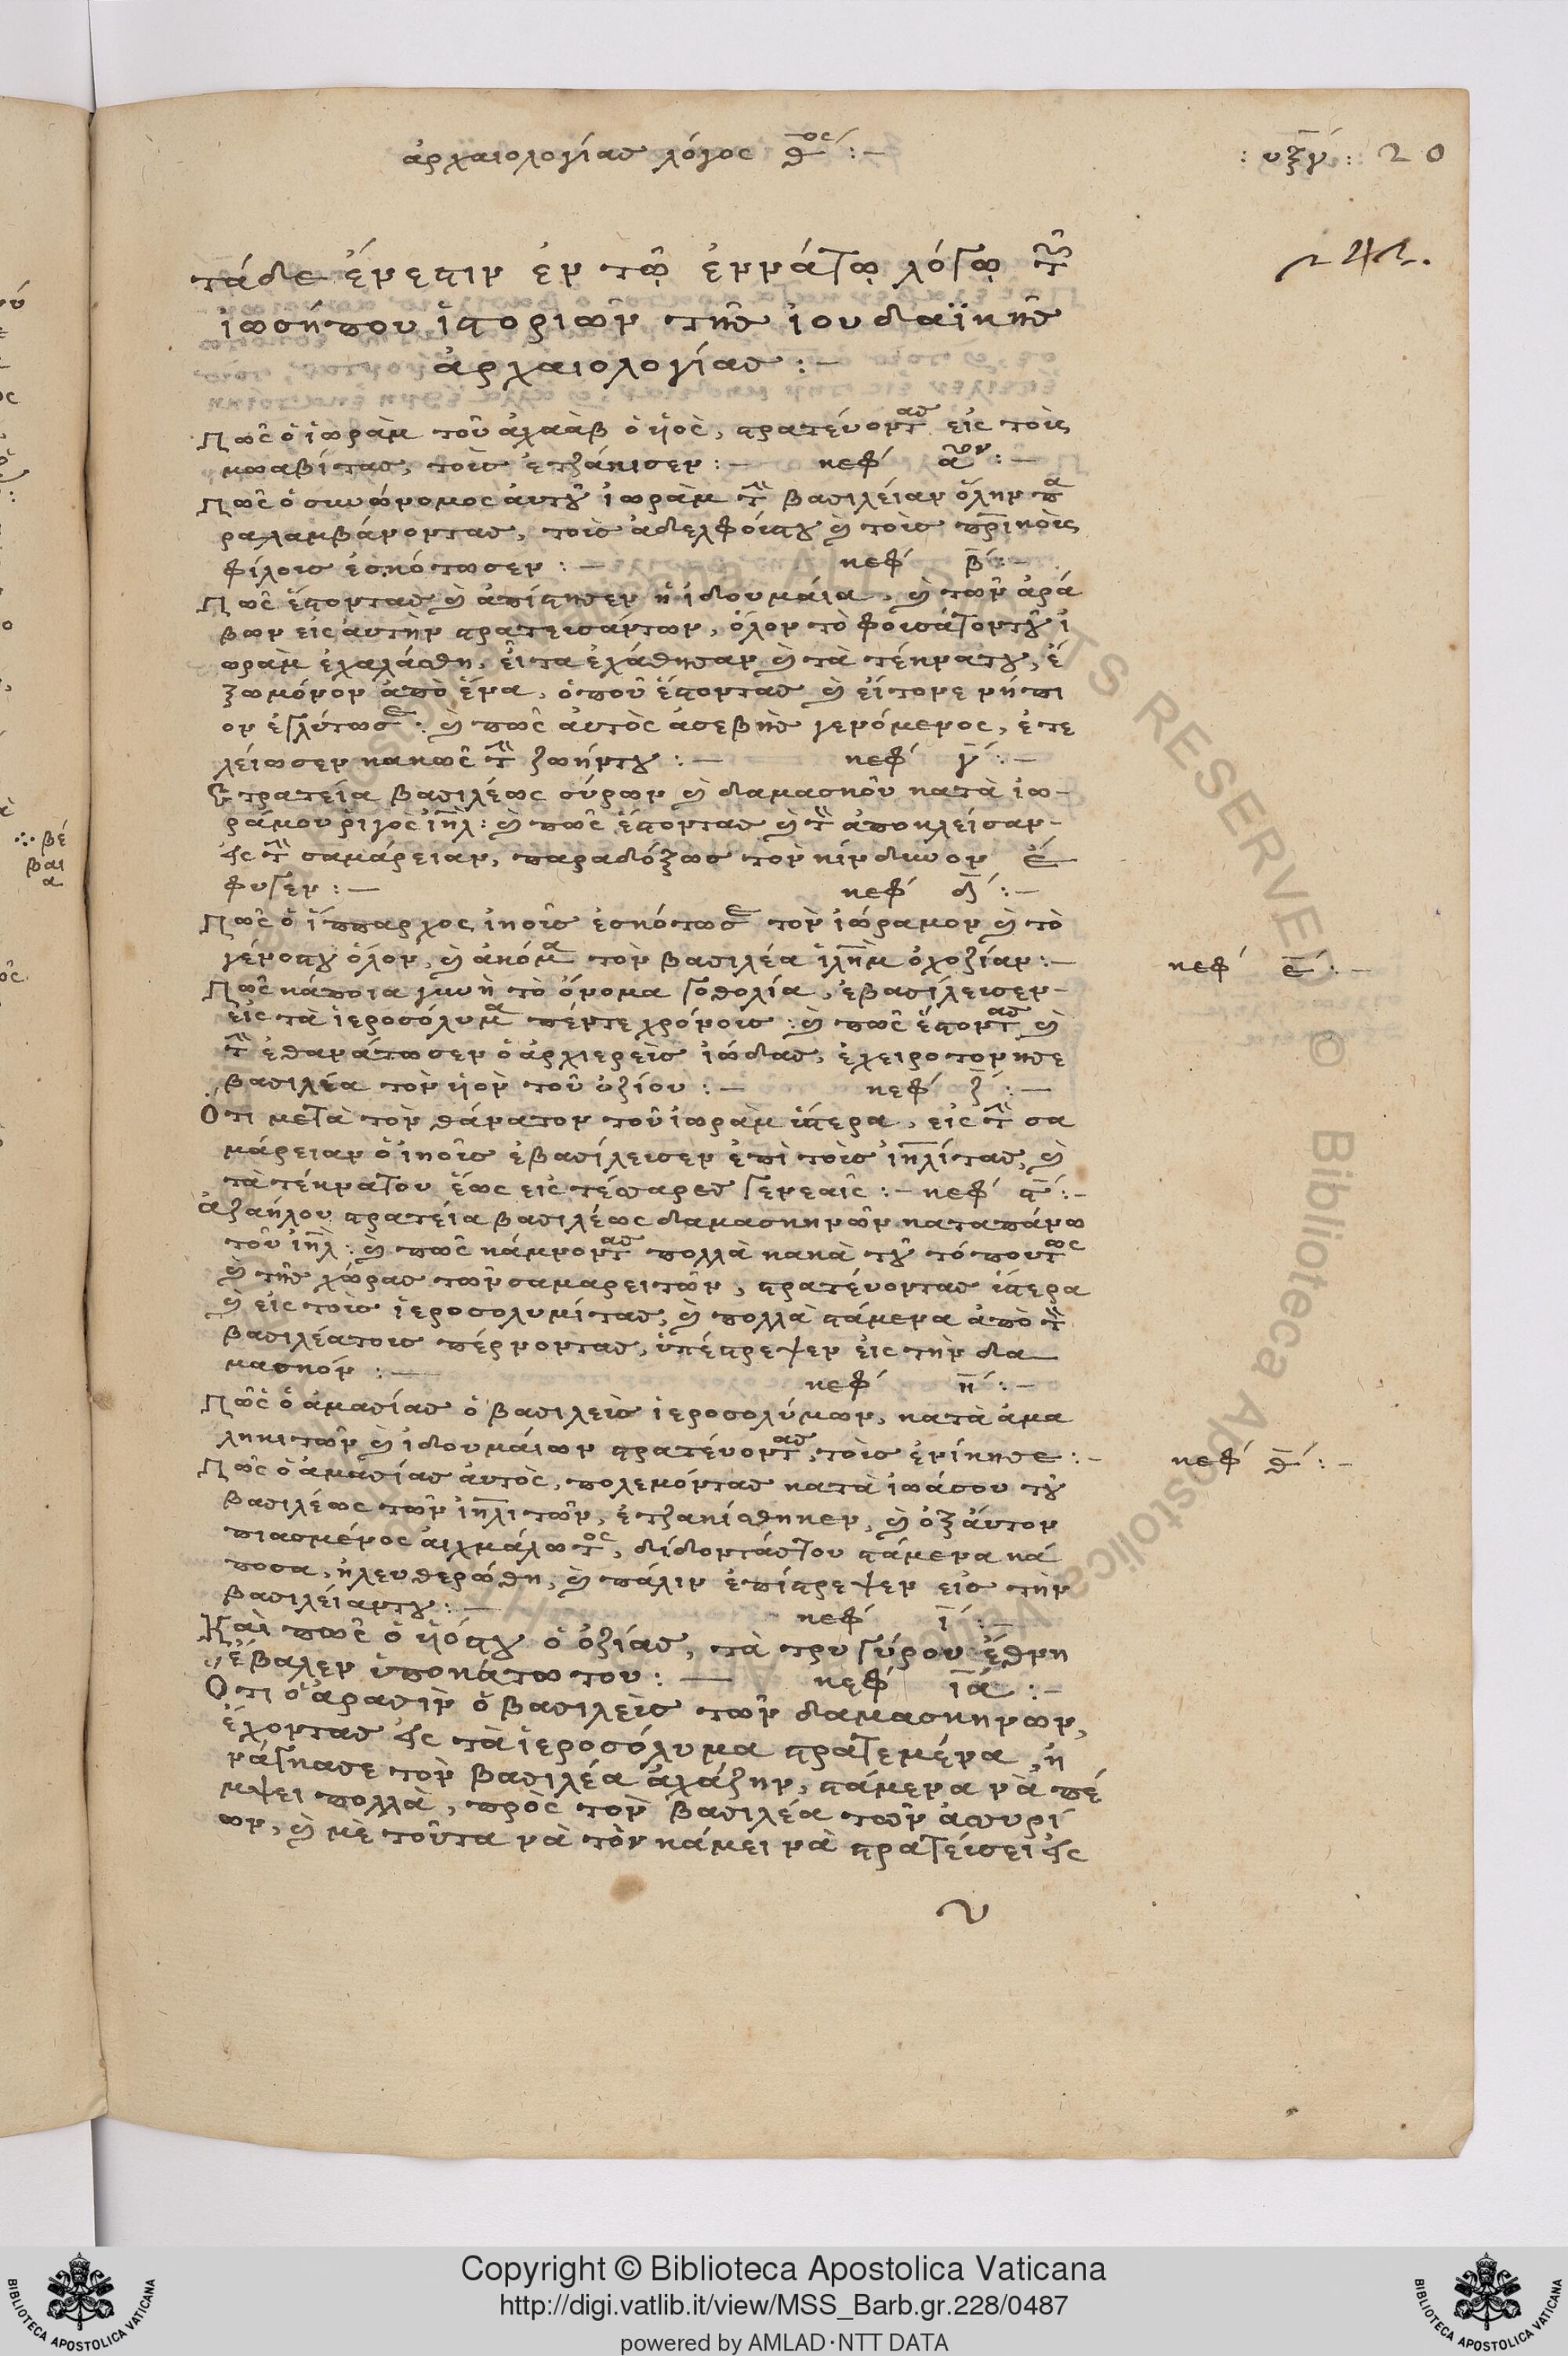 ἀρχαιολογίας λόγος θος :-
: υξγ : 20
τάδε ἔνεστιν ἐν τῶ ἐννάτω λόγω τοῦ
ἰωσήπου ἱστοριῶν τῆς ἰουδαϊκῆς
ἀρχαιολογίας :-
Πῶς ὁ ἰωρὰμ τοῦ ἀχαὰβ ὁ ἡὸς, στρατέυοντας εἰς τοὶς
μωαβίτας, τοὶς ἐτζάκισεν :- κεφ αον :-
Πῶς ὁ συνώνομος ἀυτοῦ ἰωρὰμ τὴν βασιλείαν ὅλην πα
ραλαμβάνοντας, τοὶς ἀδελφόιστου καὶ τοὶς πρικοὶς
φίλοις ἐσκότωσεν :- κεφ β :-
Πῶς ἔστοντας καὶ ἀπίστησεν ἡ ἰδουμάια, καὶ τῶν ἀρά
βων εἰς ἀυτὴν στρατεισάντων, ὅλον τὸ φοισάτοντου ἰ
ωρὰμ ἐχαλάσθη, εἶτα ἐχάθησαν καὶ τὰ τέκνατου, ἔ
ξω μόνον ἀπὸ ἕνα, ὁποῦ ἔστοντας καὶ εἴτονε νήπι
ον ἐγλύτωσε : καὶ πῶς ἀυτὸς ἀσεβὴς γενόμενος, ἐτε
λείωσεν κακῶς τὴν ζωήντου :- κεφ γ :-
Στρατεία βασιλέως σύρων καὶ δαμασκοῦ κατὰ ἰω-
ράμου ῥιγὸς ἰηλ : καὶ πῶς ἔστοντας καὶ τὸν ἀποκλείσαν-
εις τὴν σαμάρειαν, παραδόξως τὸν κίνδυνον ἔ
φυγεν :- κεφ δ :-
Πῶς ὁ ἵππαρχος ἰηοῖς ἐσκότωσε τὸν ἰώραμον καὶ τὸ
γένοστου ὅλον, καὶ ἀκόμα τὸν βασιλέα ἱλημ ὀχοζίαν :-
κεφ ε :-
Πῶς κάποια γυνὴ τὸ ὄνομα γοθολία, ἐβασίλεισεν-
εἰς τὰ ἱεροσόλυμα πέντε χρόνοις : καὶ πῶς ἔστοντας καὶ
τὴν ἐθανάτωσεν ὁ ἀρχιερεὶς ἰώδας, ἐχειροτονησε
βασιλέα τὸν ἡὸν τοῦ ὀζίου :- κεφ ζ :-
Ὅτι μετὰ τὸν θάνατον τοῦ ἰωρὰμ ὕστερα, εἰς τὴν σα
μάρειαν ὁ ἰηοῖς ἐβασίλεισεν ἐπὶ τοὶς ἰηλίτας, καὶ
τὰ τέκνατου ἕως εἰς τέσσαρες γενεαῖς :- κεφ ζ :-
ἀζαήλου στρατεία βασιλέως δαμασκηνῶν καταπάνω
τοῦ ἰηλ : καὶ πῶς κάμνοντας πολλὰ κακὰ τοῦ τόπουτως
καὶ τῆς χώρας τῶν σαμαρειτῶν, στρατέυοντας ὕστερα
καὶ εἰς τοὶς ἱεροσολυμίτας, καὶ πολλὰ στάμενα ἀπὸ τὸν
βασιλέατοις πέρνοντας, ὑπέστρεψεν εἰς τὴν δα-
μασκόν :- κεφ η :-
Πῶς ὁ ἀμασίας ὁ βασιλεὶς ἱεροσολύμων, κατὰ ἀμα
ληκιτῶν καὶ ἰδουμάιων στρατέυοντας, τοὶς ἐνίκησε :-
κεφ θ :-
Πῶς ὁ ἀμασίας ἀυτὸς, πολεμόντας κατὰ ἰωάσου τοῦ
βασιλέως τῶν ἰηλιτῶν, ἐτζακίσθηκεν, καὶ ὀξ ἀύτον
πιασμένος ἀιχμάλωτος, δίδοντάςτου στάμενα κά
ποσα, ἠλευθερώθη, καὶ πάλιν ἐπίστρεψεν εἰς τὴν
βασιλείαντου :- κεφ ι :-
Καὶ πῶς ὁ ἡόςτου ὁ ὀζίας, τὰ τρυγύρου ἔθνη
ἔβαλεν ὑποκάτω του :- κεφ ια :-
Ὅτι ὁ ἀρασὶν ὁ βασιλεὶς τῶν δαμασκηνων,
ἔχοντας εις τὰ ἱεροσόλυμα στρατεμένα, ἠ
νάγκασε τὸν βασιλέα ἀχάζην, στάμενα νὰ πέ
μψει πολλὰ, πρὸς τὸν βασιλέα τῶν ἀσσυρί
ων, καὶ μὲ τοῦτα νὰ τὸν κάμει νὰ στρατεύσει εις
∴ βέ
βαι
α
Copyright © Biblioteca Apostolica Vaticana
http://digi.vatlib.it/view/MSS_Barb.gr.228/0487
powered by AMLAD·NTT DATA
BIBLIOTECA APOSTOLICA VATICANA
BIBLIOTECA APOSTOLICA VATICANA